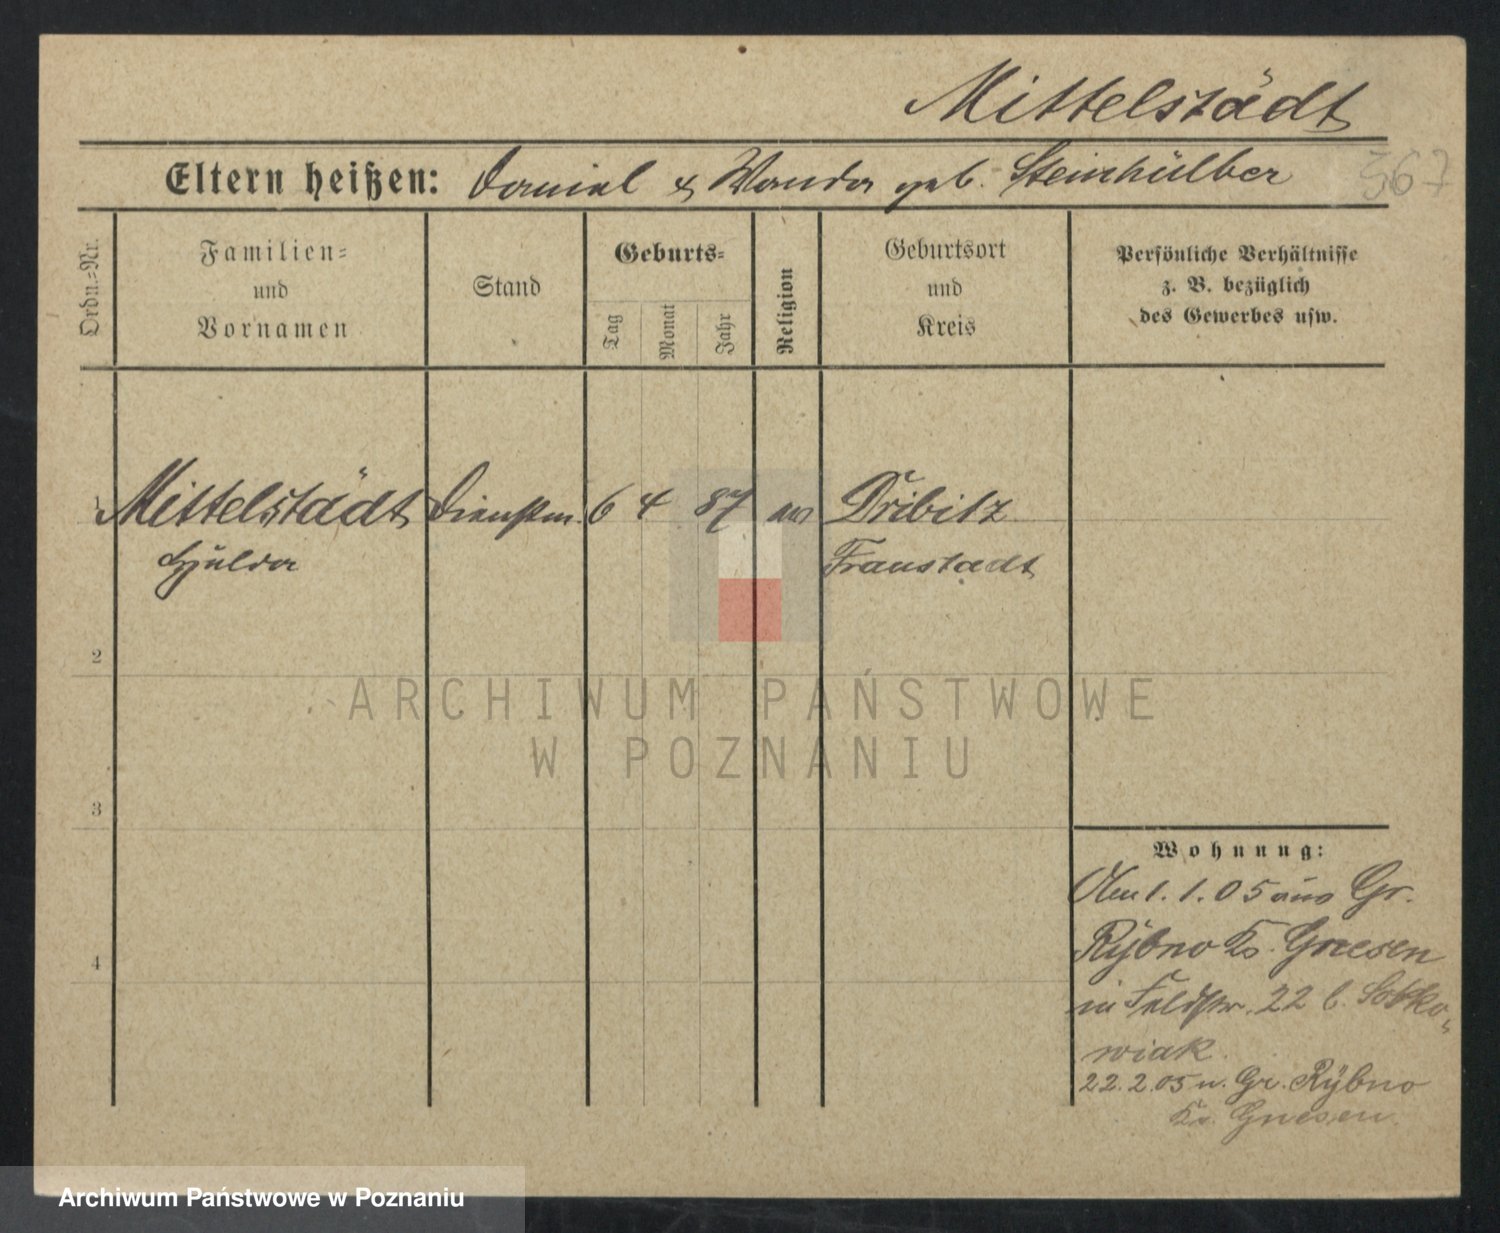 Mittelstädt
Eltern heißen: Daniel & Wanda geb. Steinhülber
367
Ordn.=Nr.
Familien=
und
Vornamen
Stand
Geburts=
Tag
Monat
Jahr
Religion
Geburtsort
und
Kreis
Persönliche Verhältnisse
z. B. bezüglich
des Gewerbes usw.
1 Mittelstädt Dienstm. 6 4 87 ev Dribitz
Hulda Fraustadt
2
3
4
ARCHIWUM PAŃSTWOWE
W POZNANIU
Wohnung:
1. 1. 05 aus Gr.
Rybno Ks. Gnesen
in Feldstr. 22 b. Sobko-
wiak
22. 2. 05 n. Gr. Rybno
Ks. Gnesen
Archiwum Państwowe w Poznaniu